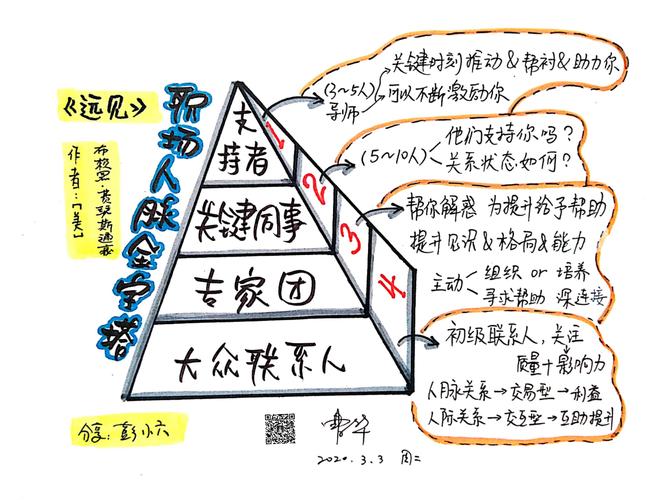 《远见》
作者：[美]
布赖恩·费瑟斯通豪
职场人脉金字塔
支
持者
关键同事
专家团
大众联系人
1
2
3
4
(3~5人)
导师
关键时刻推动&帮衬&助力你
可以不断激励你
(5~10人)
他们支持你吗？
关系状态如何？
帮你解惑 为提升给予帮助
提升见识&格局&能力
主动
组织 or 培养
寻求帮助 深连接
初级联系人，关注
质量+影响力
人脉关系→交易型→利益
人际关系→交互型→互助提升
分享：彭小六
2020.3.3 周二